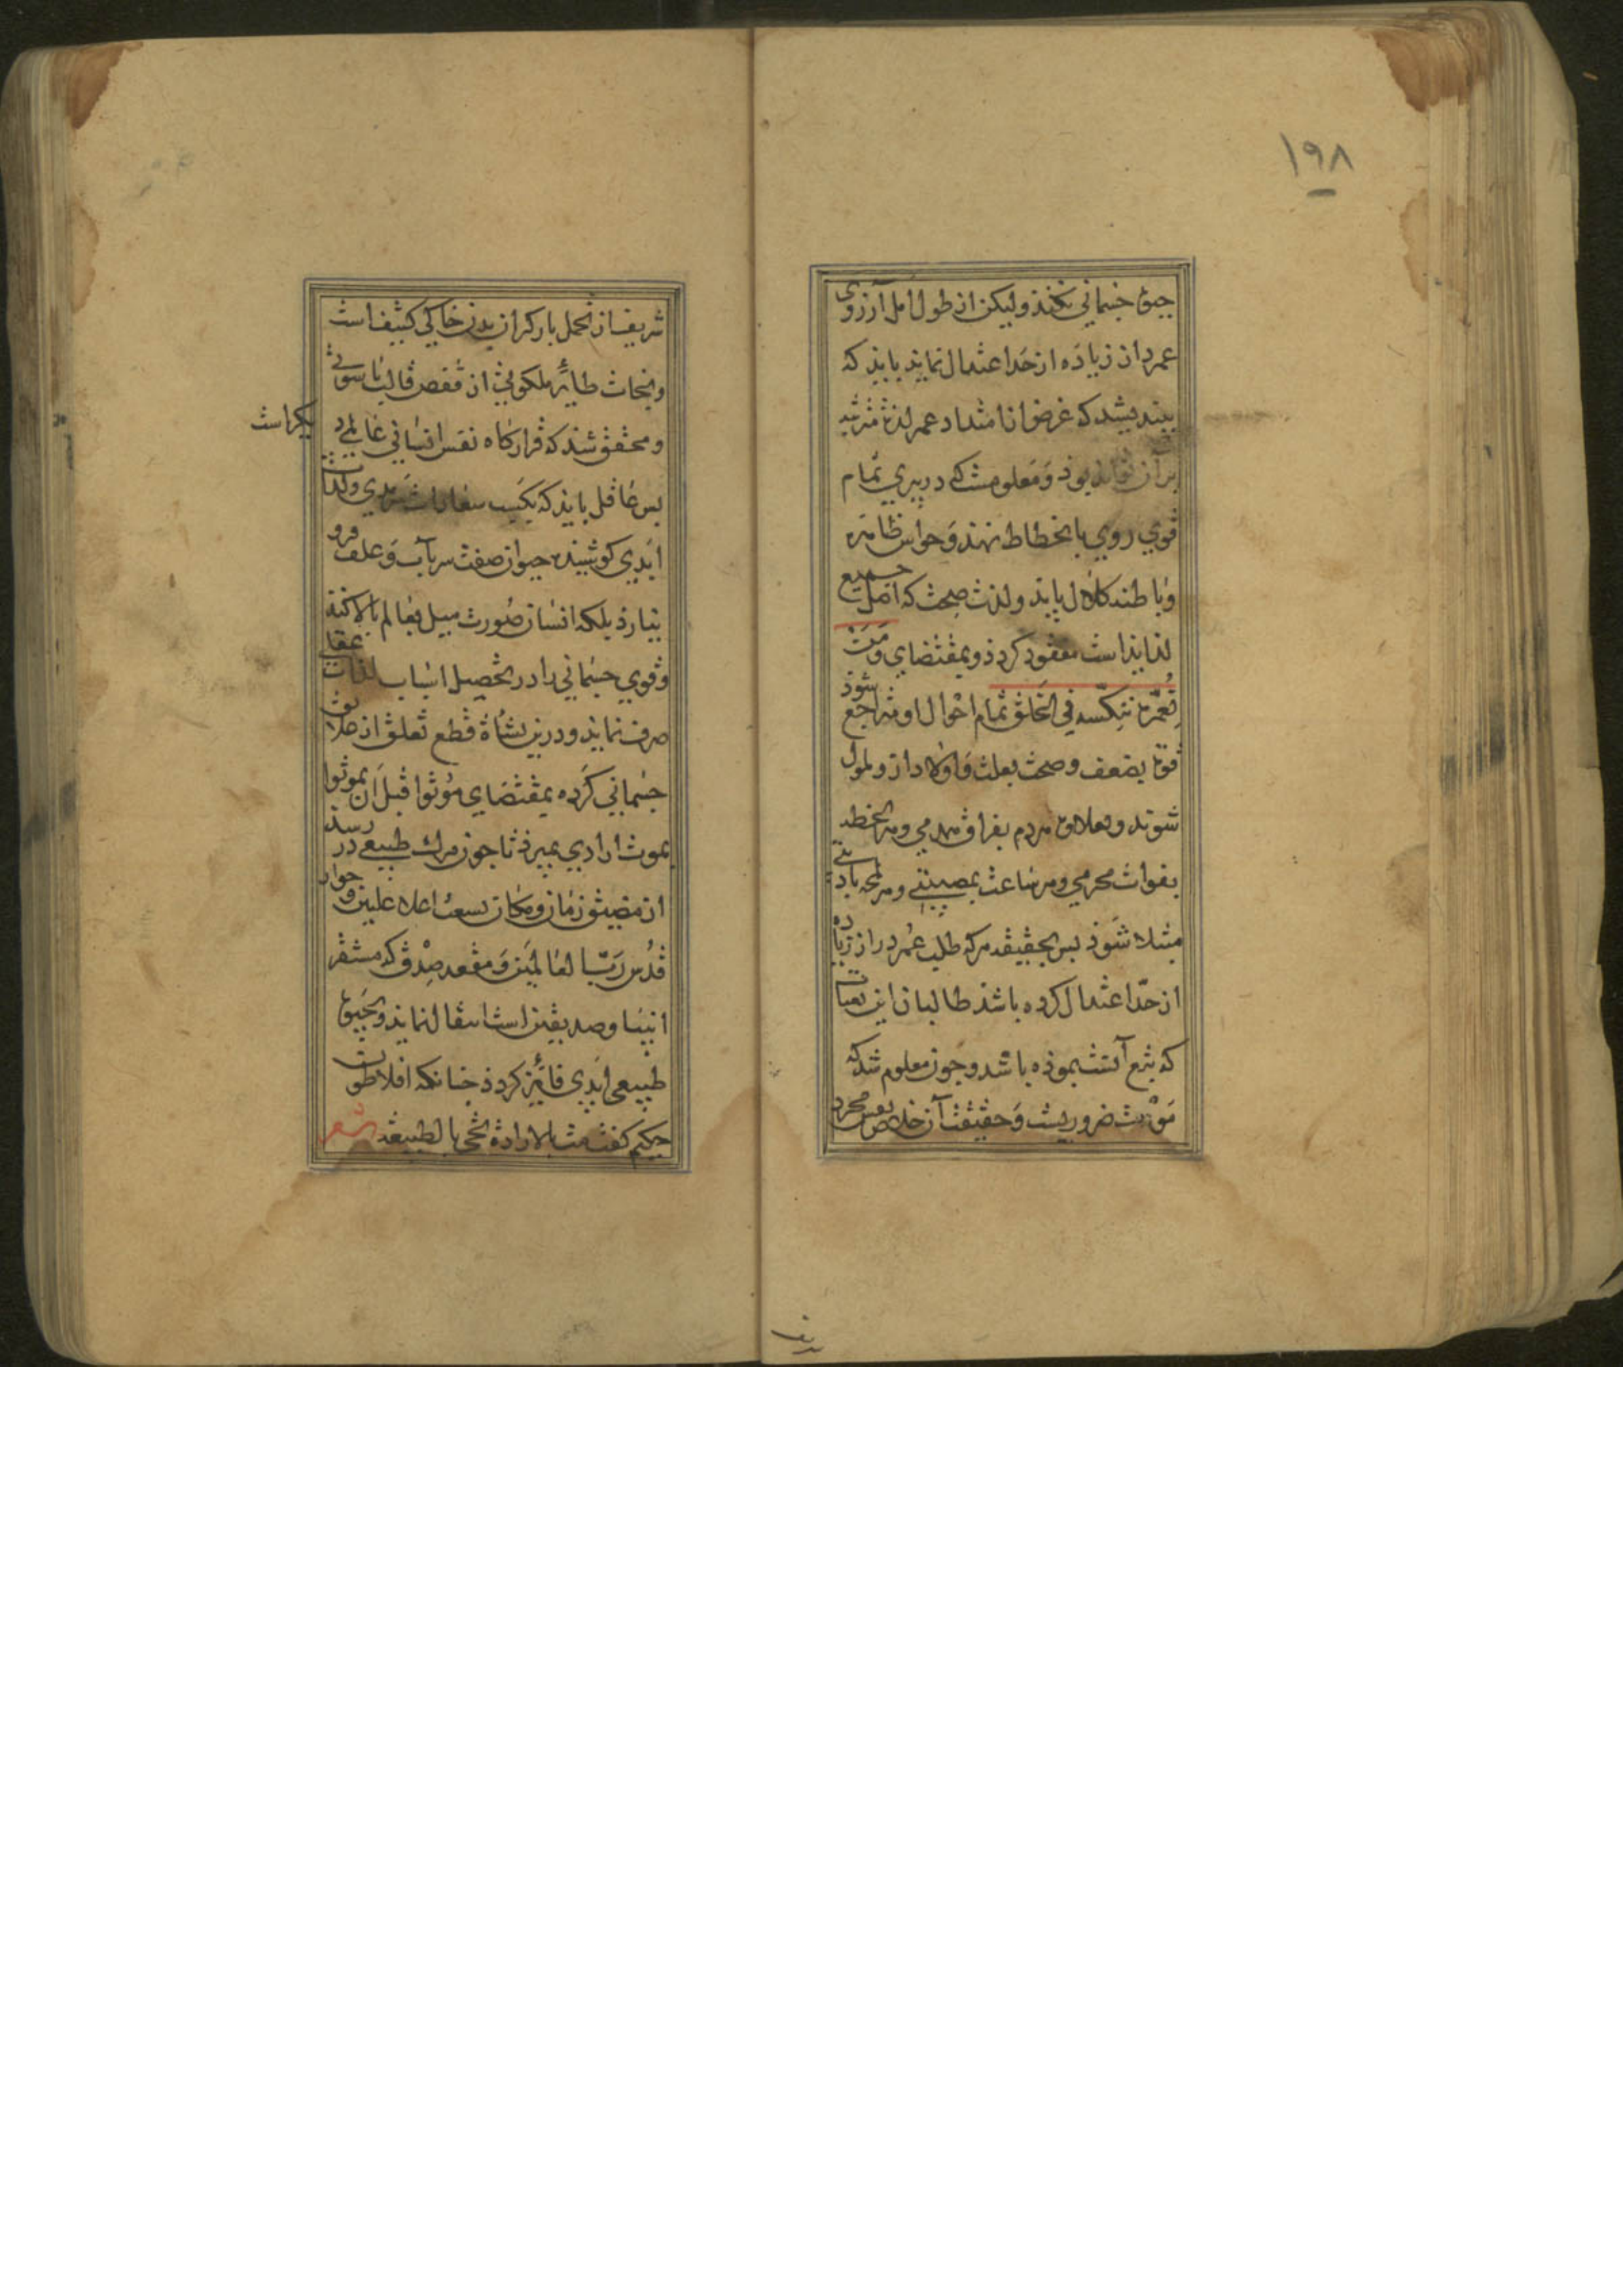 ١٩٨
حیوة جسمانی نکند ولیکن از طول امل آرزوی
عمر دراز زیاده از حد اعتدال نماید باید که
بیندیشد که غرض از امتداد عمر لذت مترتبه
بر آن تواند بود و معلومست که در پیری تمام
قوی روی بانحطاط نهند و حواس ظاهره
وباطنه کلال یابد ولذت صحت که اصل جمیع
لذایذ است مفقود کردد وبمقتضای وَمَنْ
نُعَمِّرْهُ نُنَكِّسْهُ فِي الْخَلْقِ تمام احوال او متراجع شود
قوة بضعف وصحت بعلت و اولاد ازو ملول
شوند وبعلاوه مردم بفراق همدمی وهر لحظه
بفوات محرمی وهر ساعت بمصیبتی وهر لمحه باذیتی
مبتلا شوذ بس بحقیقه هرکه طلب عُمر دراز زیاده
از حدّ اعتدال کرده باشد طالبان این تعبات
که شرح آن بنموده باشد وجون معلوم شد که
مَوْت ضروریست وَحقیقت آن خلاص نفس مجرد
شریف از تحمل بار کران بدن خاکی کثیف است
ونجات طائر ملکوتی از قفص قالب ناسوتی
ومحقق شد که قرارکاه نفس انسانی عالمی دیکر است
بس عاقل باید که بکسب سعادات سَرمدی ولذات
ابَدی کوشیده حیوان صفت سر بآب وَعلف فرو
نیارد بلکه انسان صُورت میل بعالم بالا کند
وقوی جسمانی را در تحصیل اسباب لذات عقلی
صرف نماید و درین نشأة قطع تعلق از علایق
جسمانی کَرده بمقتضای مُوتُوا قَبلَ اَن تموتوا
بموت ارادی بمیرذ تا جون مرک طبیعی در رسد
از مضیق زمان و مکان بسعت اعلاء علیین و جوار
قدُس رَبّ العالمَین وَ مقعد صِدْق که مستقر
انبیا و صدیقین است انتقال نماید وبحَیوة
طبیعی ابَدی فائِز کردذ جنانکه افلاطون
حکیم کفت مت بالارادة تحی بالطبیعة شعر